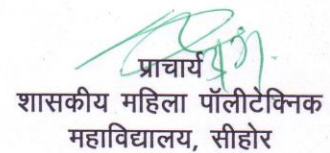 प्राचार्य
शासकीय महिला पॉलीटेक्निक
महाविद्यालय, सीहोर